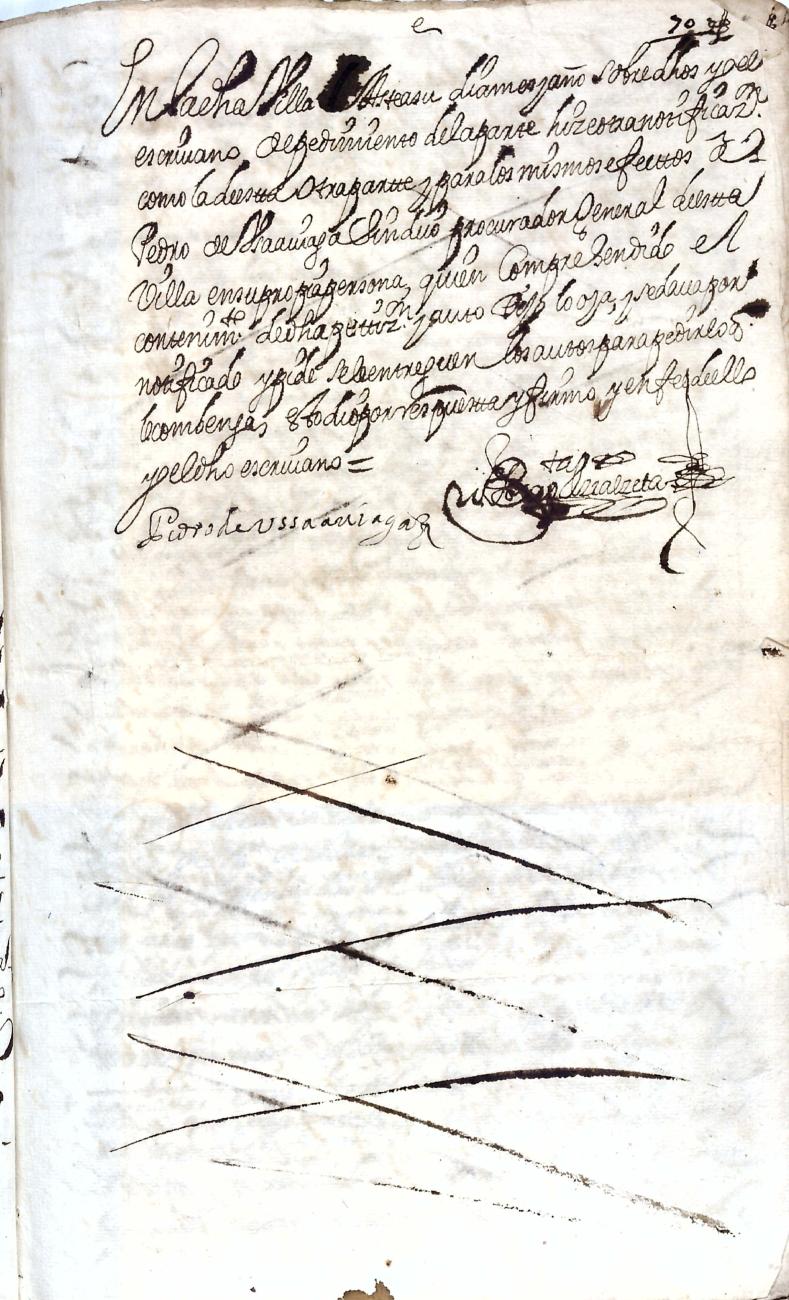 70
En la dha Villa de Asteasu dia mes y año sobredhos yo el
escriuano de pedimiento de la parte hize otra notificaz.n
como la desta otra parte y para los mismos efectos a
Pedro de Vsauiaga Sindico procurador General desta
Villa en su propia persona, quien Comprehendido el
contenim.to de dha petiz.n y auto Dijo lo oja, y se daua por
notificado y pide se le entreguen los autos para pedir lo q
le combenga, esto dio por respuesta y firmo, y en fee de ello
yo el dho escriuano =
Pedro de Vssauiaga